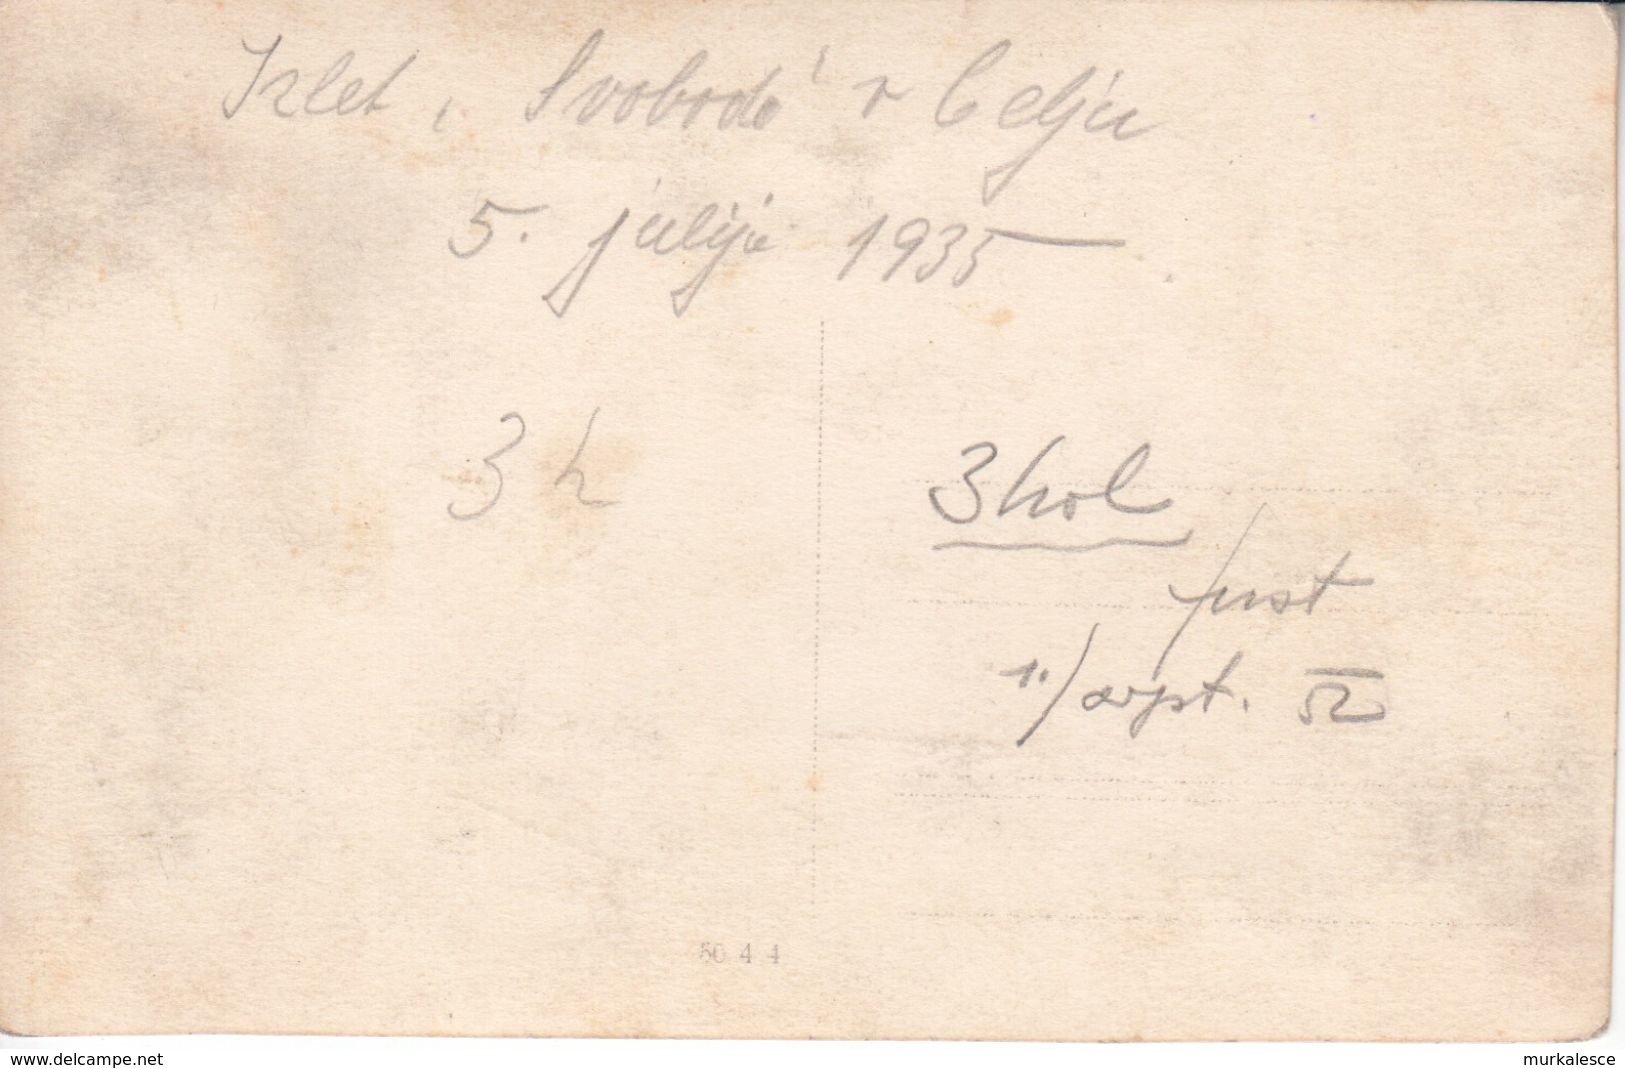 Izlet „Svobode" v Celju
5. julija 1935
3 h
3 kol
just
1./
52
50 4 4
www.delcampe.net
murkalesce